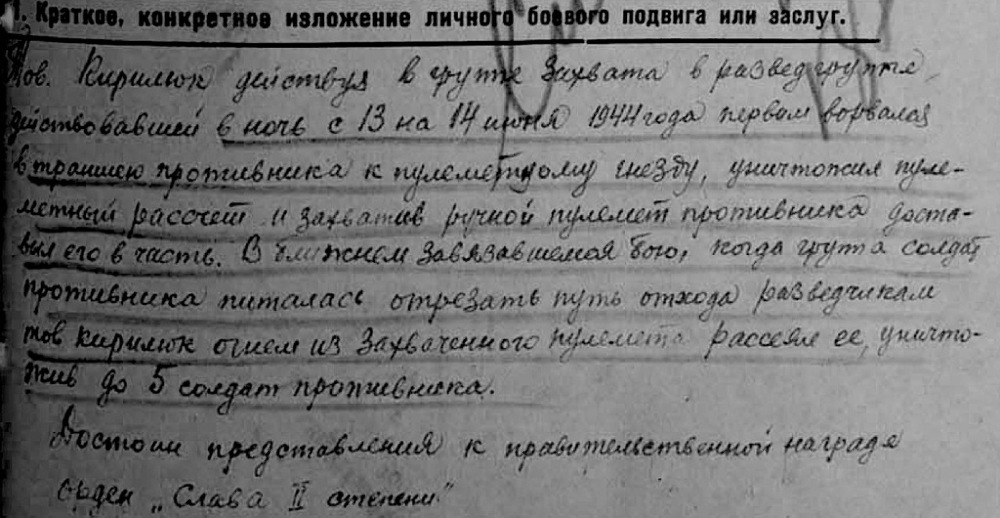 1. Краткое, конкретное изложение личного боевого подвига или заслуг.
Тов. Кирилюк действуя в группе захвата в разведгруппе
действовавшей в ночь с 13 на 14 июня 1944 года первым ворвался
в траншею противника к пулеметному гнезду, уничтожил пуле-
метный рассчет и захватив ручной пулемет противника доста-
вил его в часть. В ближнем завязавшемся бою, когда группа солдат
противника питалась отрезать путь отхода разведчикам
тов Кирилюк огнем из захваченного пулемета рассеял ее, уничто-
жив до 5 солдат противника.
Достоин представления к правительственной награде
орден „Слава II степени"